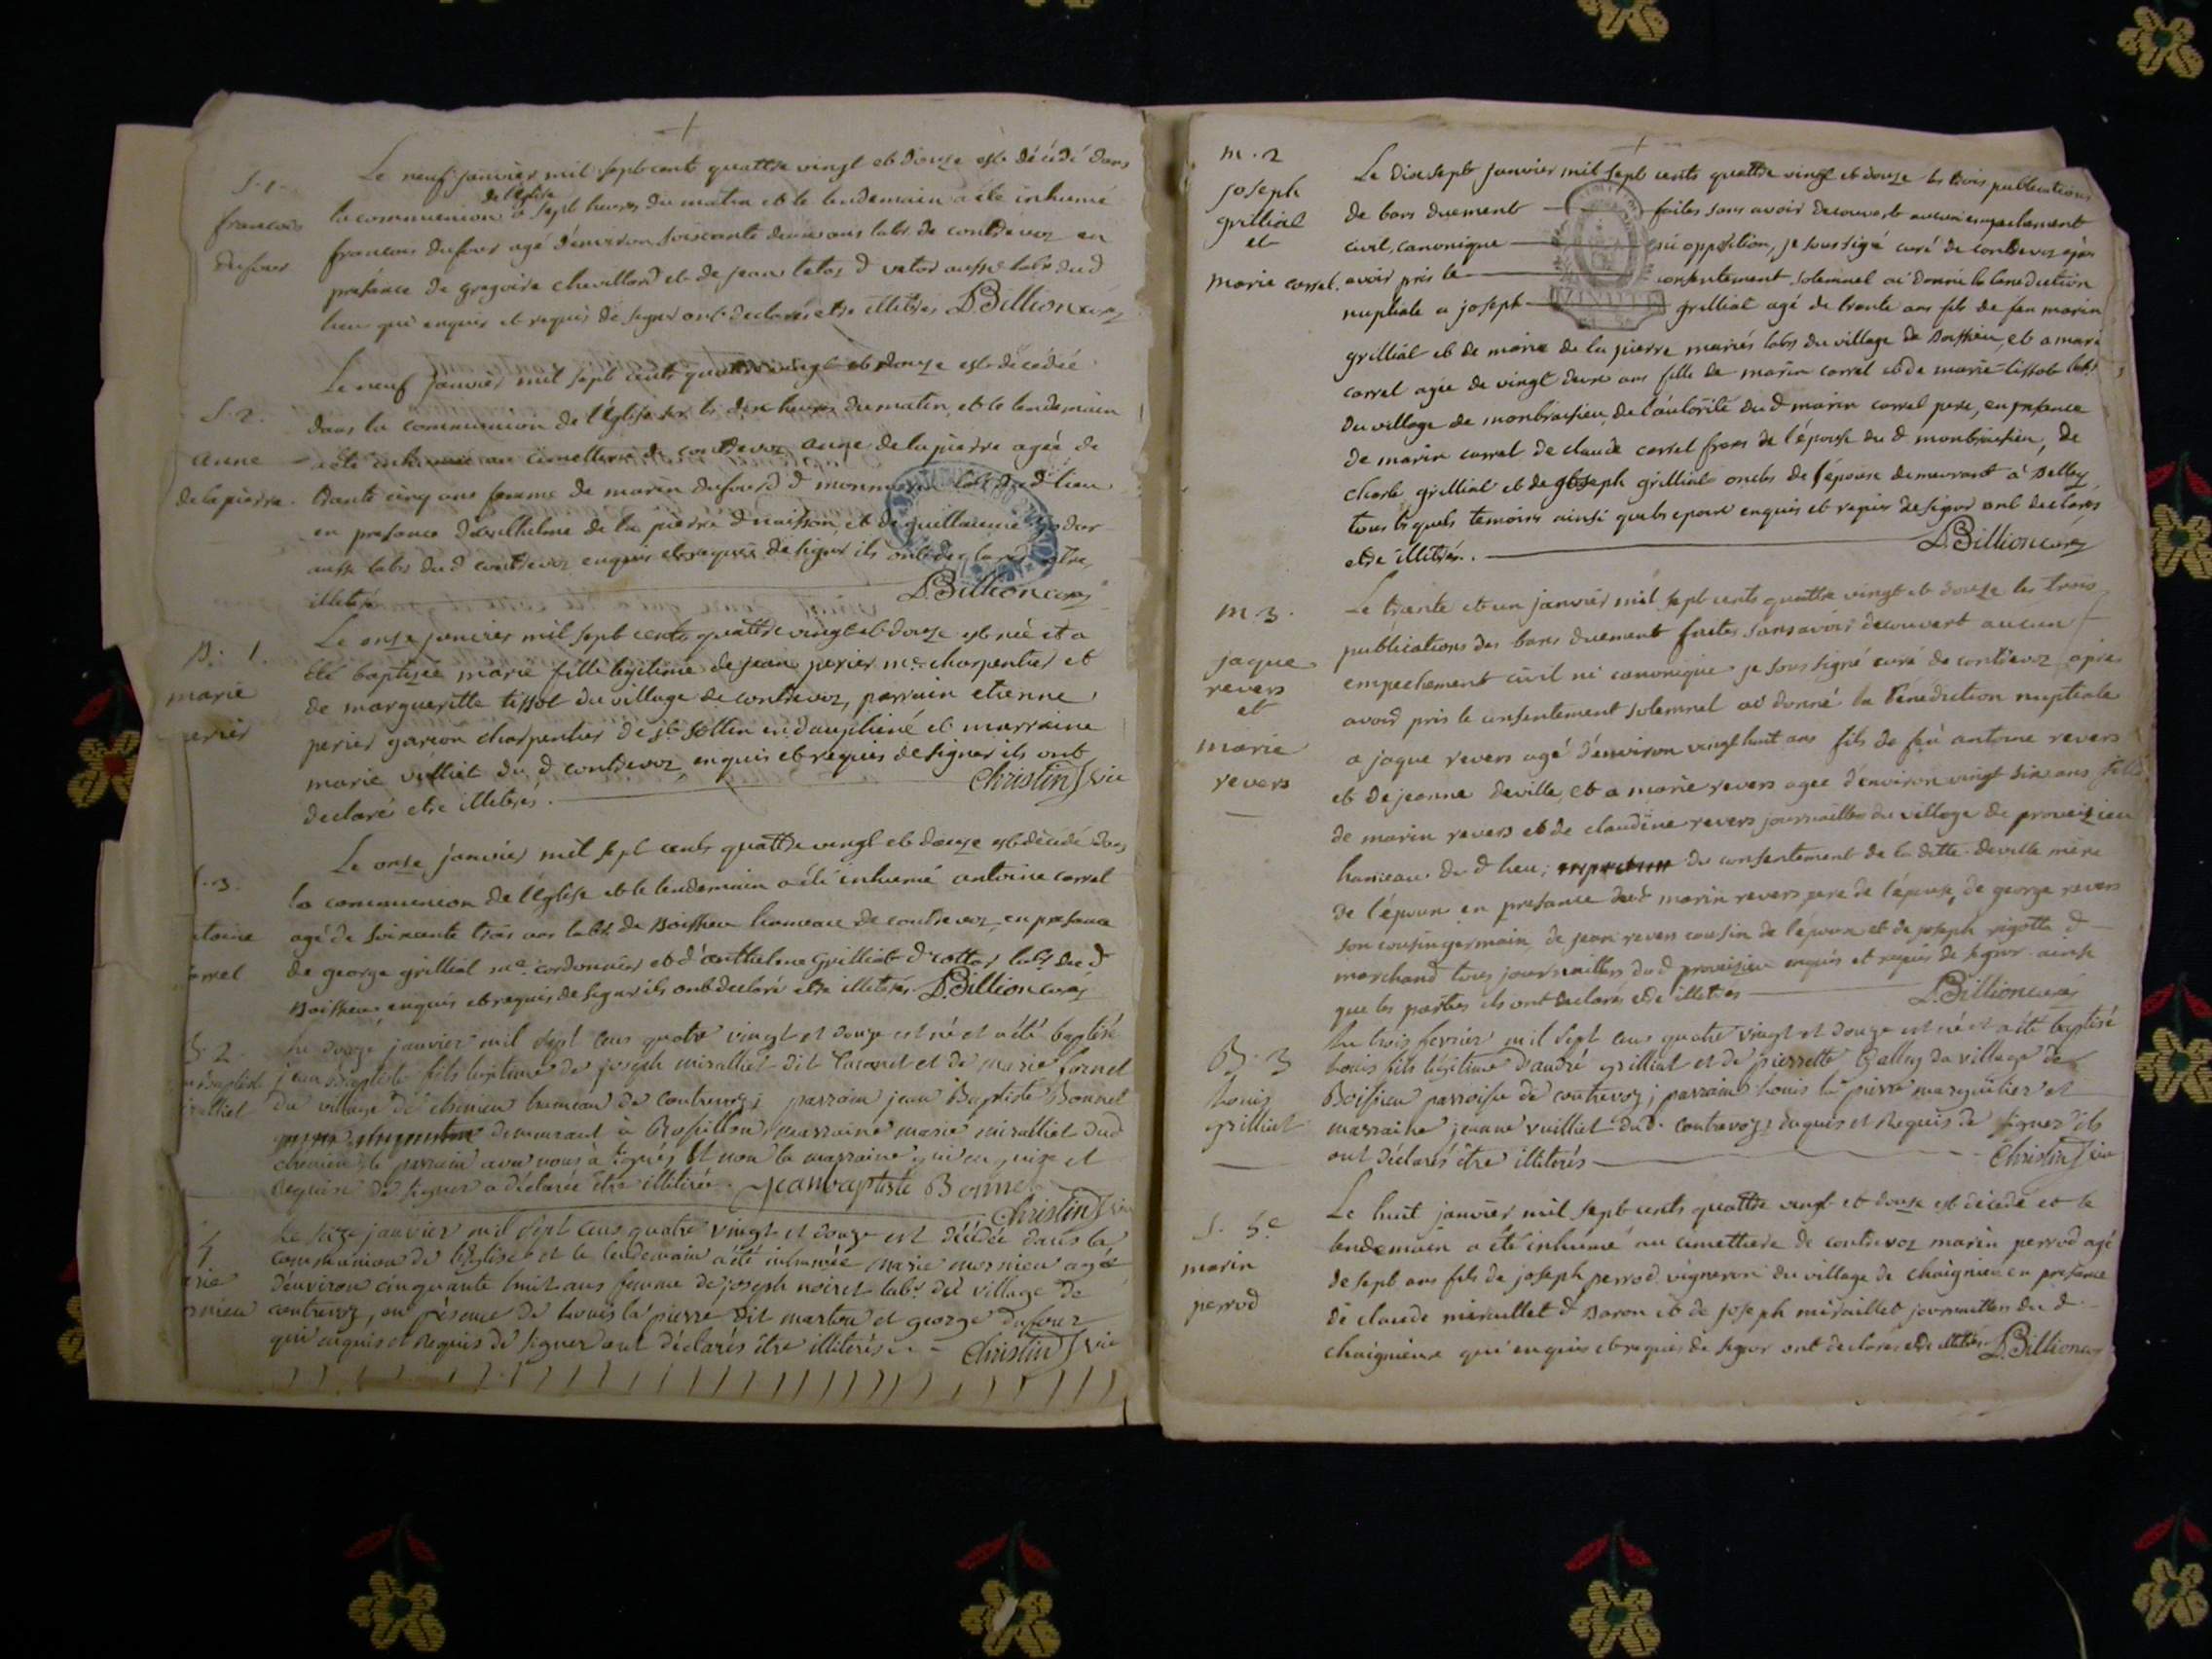 +
S. 1.
françois
dufour
Le neuf janvier mil sept cents quattre vingt et douze est décédé dans
la communion de l'église à sept heures du matin et le lendemain a été inhumé
françois dufour agé d'environ soixante deux ans labr. de contrevoz en
présance de gregoire chevillard et de jean tetaz d
lieu qui enquis et requis de signer ont declarés etre illitrés D. Billion curé
S. 2.
anne
delapierre.
Le neuf janvier mil sept cents quattre vingt et douze est décédée
dans la communion de l'église sur les dix heures du matin, et le lendemain
a été inhumée au cimettiere de contrevoz anne delapierre agée de
trante cinq ans femme de marin dufour d labr dud lieu
en presance d'anthelme de la pierre d et de guillaume
aussi labrs du d contrevoz enquis et requis de signer ils ont declaré etre
illitrés D. Billion curé
B. 1.
marie
perier
Le onze janvier mil sept cents quattre vingt et douze est née et a
été baptisée marie fille legitime de jean perier me. charpentier et
de margueritte tissot du village de contrevoz, parrain etienne
perier garçon charpentier de st. en dauphiné et marraine
marie vuilliet du d contrevoz, enquis et requis de signer ils ont
declaré etre illiterés. Christin vic
S. 3.
antoine
carrel
Le onze janvier mil sept cents quattre vingt et douze est décédé dans
la communion de l'église et le lendemain a été inhumé antoine carrel
agé de soixante trois ans labr. de Boissieu hameau de contrevoz, en presance
de george grilliat me. cordonnier et d'anthelme grilliat d cottas labr. du d
Boissieu enquis et requis de signer ils ont declaré etre illitérés D. Billion curé
B. 2
jean Baptiste
miralliet
Le douze janvier mil sept cens quatre vingt et douze est né et a été baptisé
jean Baptiste fils legitime de joseph miralliet dit et de marie fornet
du village de cheinieu hameau de contrevoz; parrain jean Baptiste Bonnet
demeurant a Rossillon, marraine marie miralliet dud
cheinieu, le parrain avec nous a signé, et non la marraine qui enquise et
requise de signer a déclarée être illitérée. Jeanbaptiste Bonnet
Christin vic
S. 4
marie
mornieu
Le seize janvier mil sept cens quatre vingt et douze est décédée dans la
communion de l'Eglise et le lendemain a été inhumée marie mornieu agée
d'environ cinquante huit ans femme de joseph noiret labr. du village de
contrevoz, en présence de louis la pierre dit marton et george dufour
qui enquis et requis de signer ont déclarés être illitérés. Christin vic
+
m. 2
joseph
grilliat
et
marie carrel.
Le dix sept janvier mil sept cents quattre vingt et douze les trois publications
de bans duement faites sans avoir decouvert aucun empechement
civil, canonique ni opposition, je soussigné curé de contrevoz après
avoir pris le consentement solemnel ai donné la benediction
nuptiale a joseph grilliat agé de trente ans fils de feu marin
grilliat et de marie de la pierre mariés labrs du village de Boissieu, et a marie
carrel agée de vingt deux ans fille de marin carrel et de marie tissot labr.
du village de monbraisieu, de l'autorité du d marin carrel pere, en presance
de marin carrel, de claude carrel frere de l'épouse du d monbraisieu, de
charle grilliat et de joseph grilliat oncles de l'épouse demeurant à Belley
tous lesquels temoins ainsi que les epoux enquis et requis de signer ont declarés
etre illitrés. D. Billion curé
m. 3.
jaque
revers
et
marie
revers
Le trante et un janvier mil sept cents quattre vingt et douze les trois
publications des bans duement faites sans avoir decouvert aucun
empechement civil ni canonique je sous signé curé de contrevoz après
avoir pris le consentement solemnel ai donné la bénédiction nuptiale
a jaque revers agé d'environ vingt huit ans fils de feu antoine revers
et de jeanne deville, et a marie revers agée d'environ vingt six ans fille
de marin revers et de claudine revers journailler du village de proveizieu
hameau du d lieu; du consentement de la ditte deville mère
de l'époux en presance dud marin revers pere de l'épouse, de george revers
son cousin germain de jean revers cousin de l'époux et de joseph rigotta d
marchand tous journaillers du d proveisieu enquis et requis de signer ainsi
que les parties ils ont declarés etre illitrés D. Billion curé
B. 3
Louis
grilliat
Le trois fevrier mil sept cens quatre vingt et douze est né et a été baptisé
Louis fils légitime d'andré grilliat et de pierrette Gallay du village de
Boissieu parroisse de contrevoz; parrain Louis la pierre marguillier et
marraine jeanne vuilliet dud. contrevoz; enquis et Requis de signer ils
ont déclarés être illiterés Christin vic
S. 5e
marin
perrod
Le huit janvier mil sept cents quattre vingt et douze est décédé et le
lendemain a été inhumé au cimettiere de contrevoz marin perrod agé
de sept ans fils de joseph perrod vigneron du village de chaignieu en presance
de claude miraillet d Baron et de joseph miraillet journaillers du d
chaignieux qui enquis et requis de signer ont declarés etre illitrés D. Billion curé